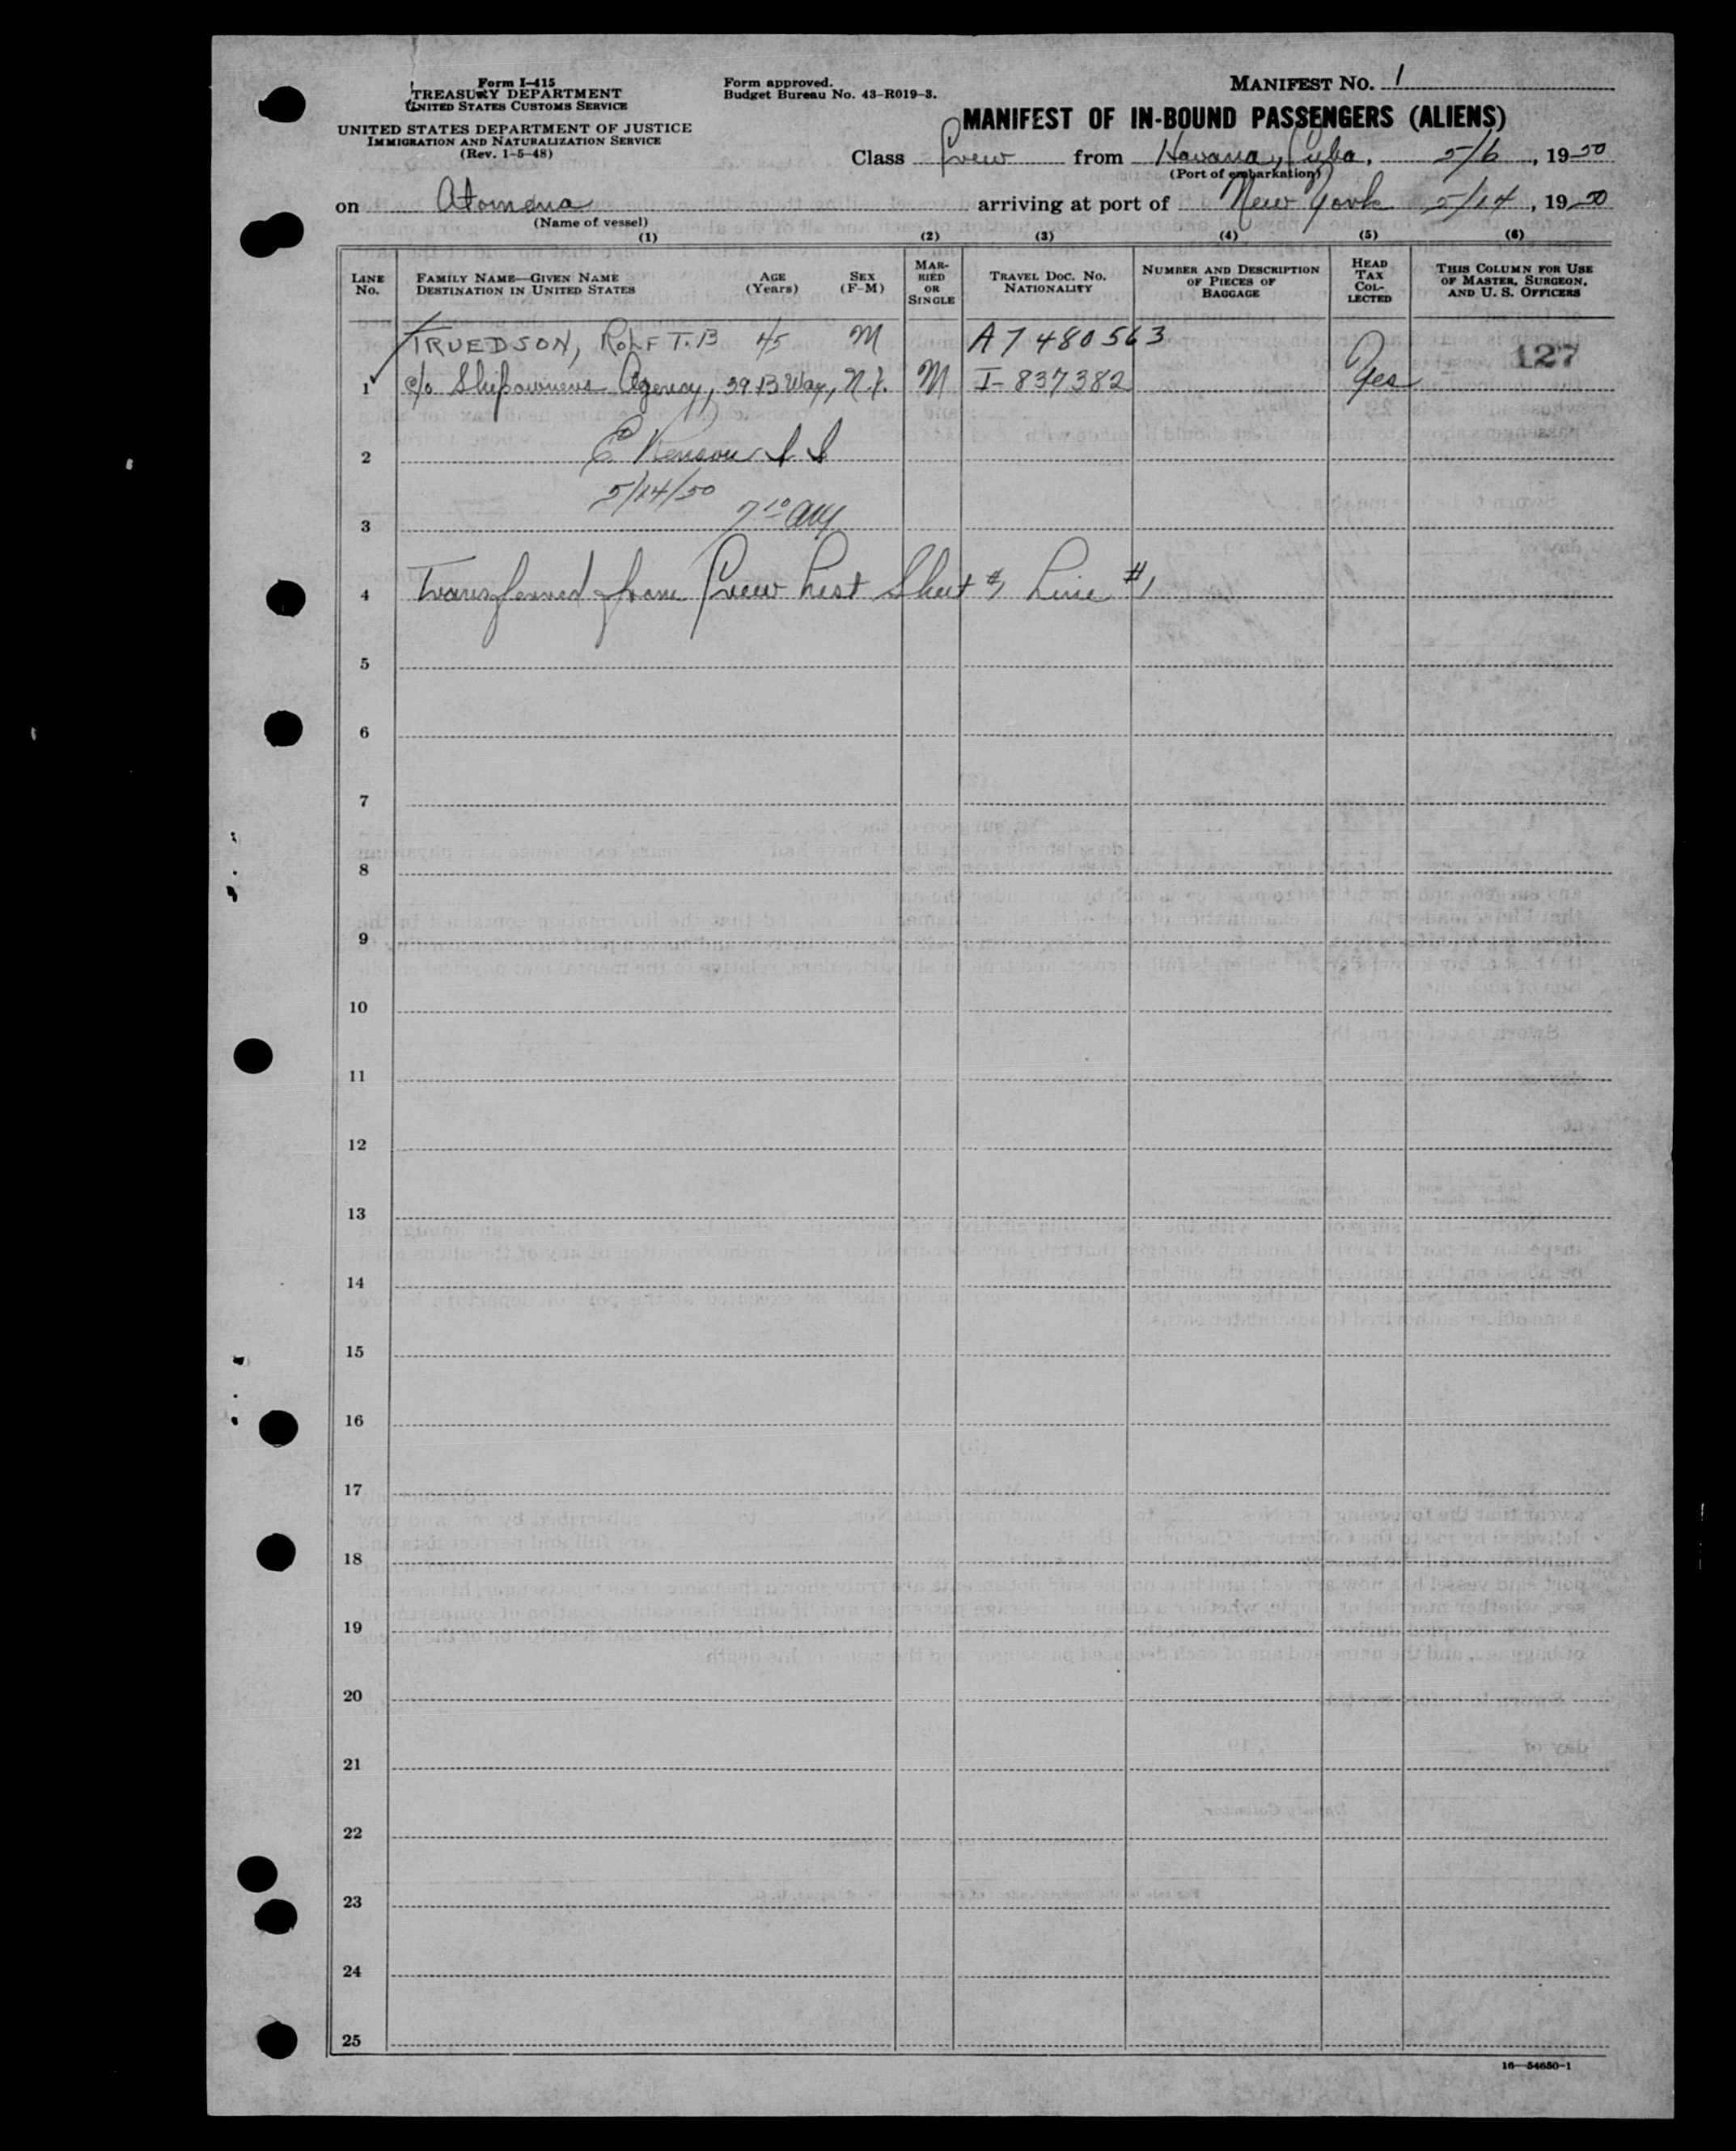 Form I-415
TREASURY DEPARTMENT
UNITED STATES CUSTOMS SERVICE
UNITED STATES DEPARTMENT OF JUSTICE
IMMIGRATION AND NATURALIZATION SERVICE
(Rev. 1-5-48)
Form approved.
Budget Bureau No. 43-R019-3.
MANIFEST NO. 1
MANIFEST OF IN-BOUND PASSENGERS (ALIENS)
Class Crew from Havana, Cuba, 5/6, 1950
(Port of embarkation)
on Atomena arriving at port of New York 5/14, 1950
(Name of vessel)
(1) (2) (3) (4) (5) (6)
LINE No. FAMILY NAME—GIVEN NAME DESTINATION IN UNITED STATES AGE (Years) SEX (F-M) MARRIED OR SINGLE TRAVEL DOC. NO. NATIONALITY NUMBER AND DESCRIPTION OF PIECES OF BAGGAGE HEAD TAX COLLECTED THIS COLUMN FOR USE OF MASTER, SURGEON, AND U. S. OFFICERS
TRUEDSON, ROLF T.B 45 M A7 480563 127
1 c/o Shipowners Agency, 39 B Way, N.Y. M I-837382 Yes
2
5/14/50
3
4 Transferred from Crew List Sheet #1 Line #1
5
6
7
8
9
10
11
12
13
14
15
16
17
18
19
20
21
22
23
24
25
16—54650-1